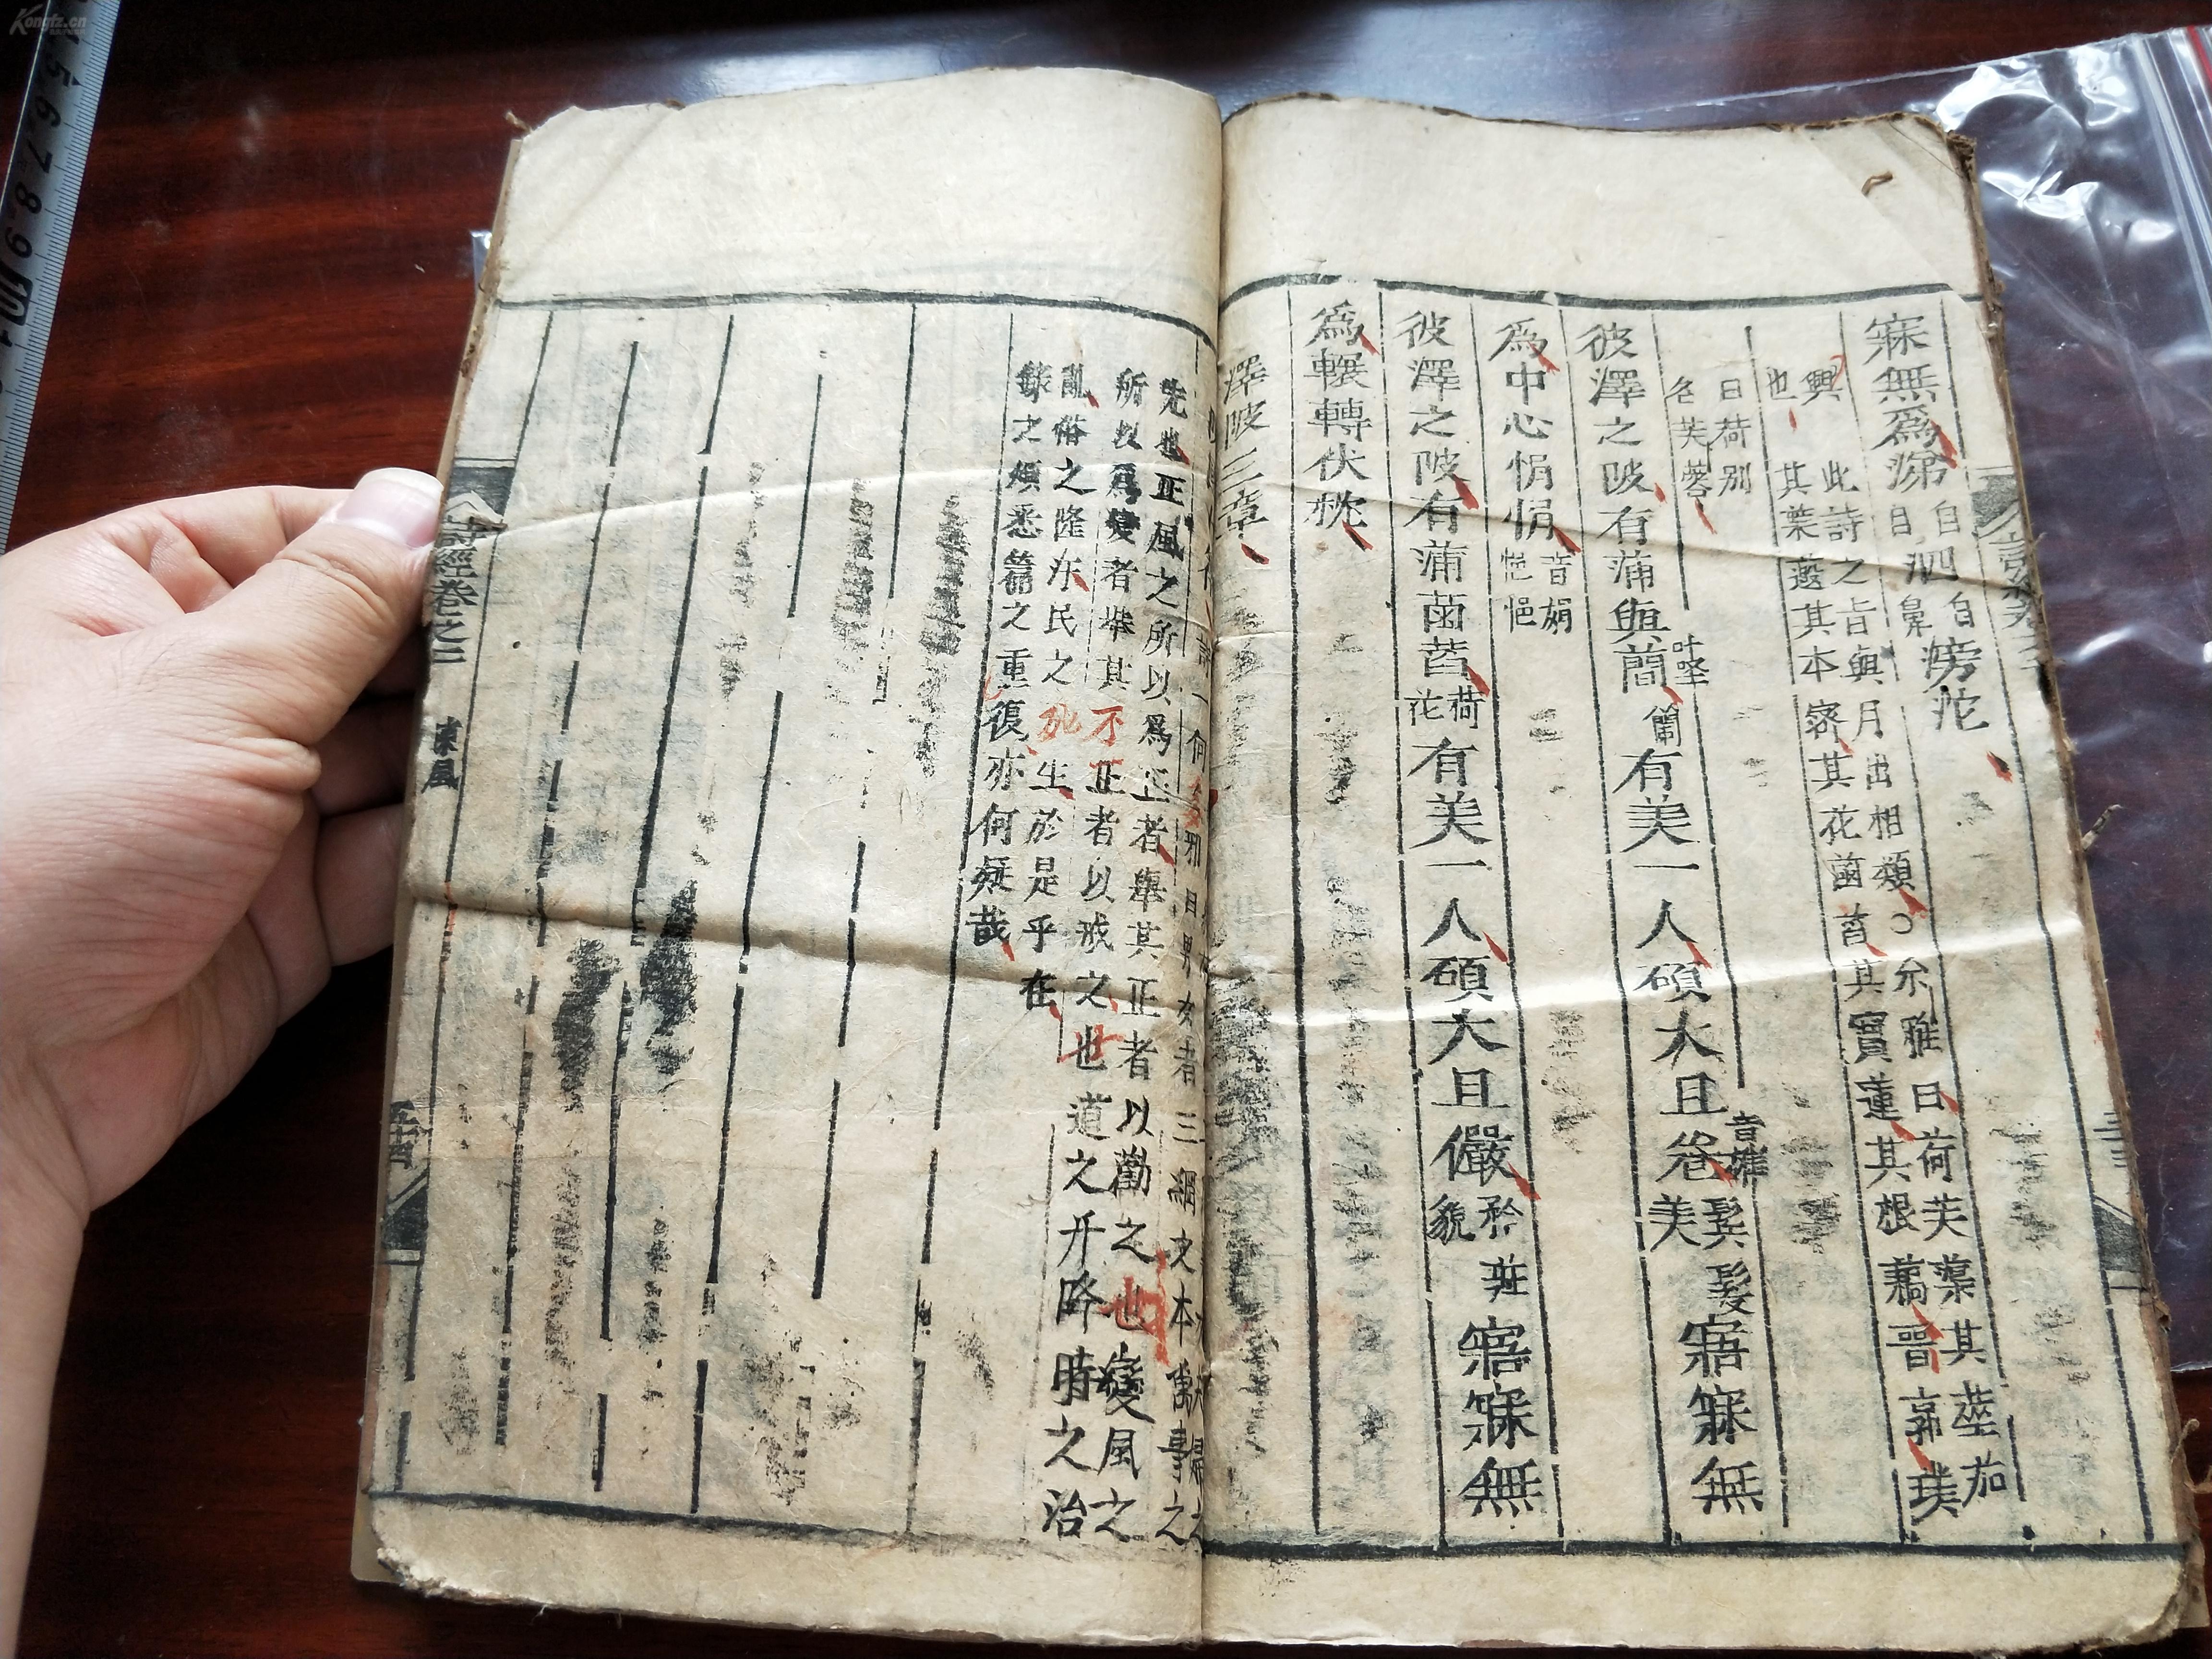 寐無爲涕自目泗自鼻滂沱
興也
此詩之旨與月出相類○尒雅曰荷芙蕖其莖茄
其葉蕸其本蔤其花菡萏其實蓮其根藕晉郭璞
曰荷別名芙蓉
彼澤之陂有蒲與蕑叶堅蘭有美一人碩大且卷音權鬓髮美寤寐無
爲中心悁悁音娟悒悒
彼澤之陂有蒲菡萏荷花有美一人碩大且儼矜莊貌寤寐無
爲輾轉伏枕
澤陂三章
先也正風之所以爲正者舉其正者以勸之也變風之
所以爲變者舉其不正者以戒之也道之升降時之治
亂俗之隆汚民之死生於是乎在
錄之煩悉篇之重復亦何疑哉
詩經卷之二
陳風
Kongfz.cn
5 6 7 8 9